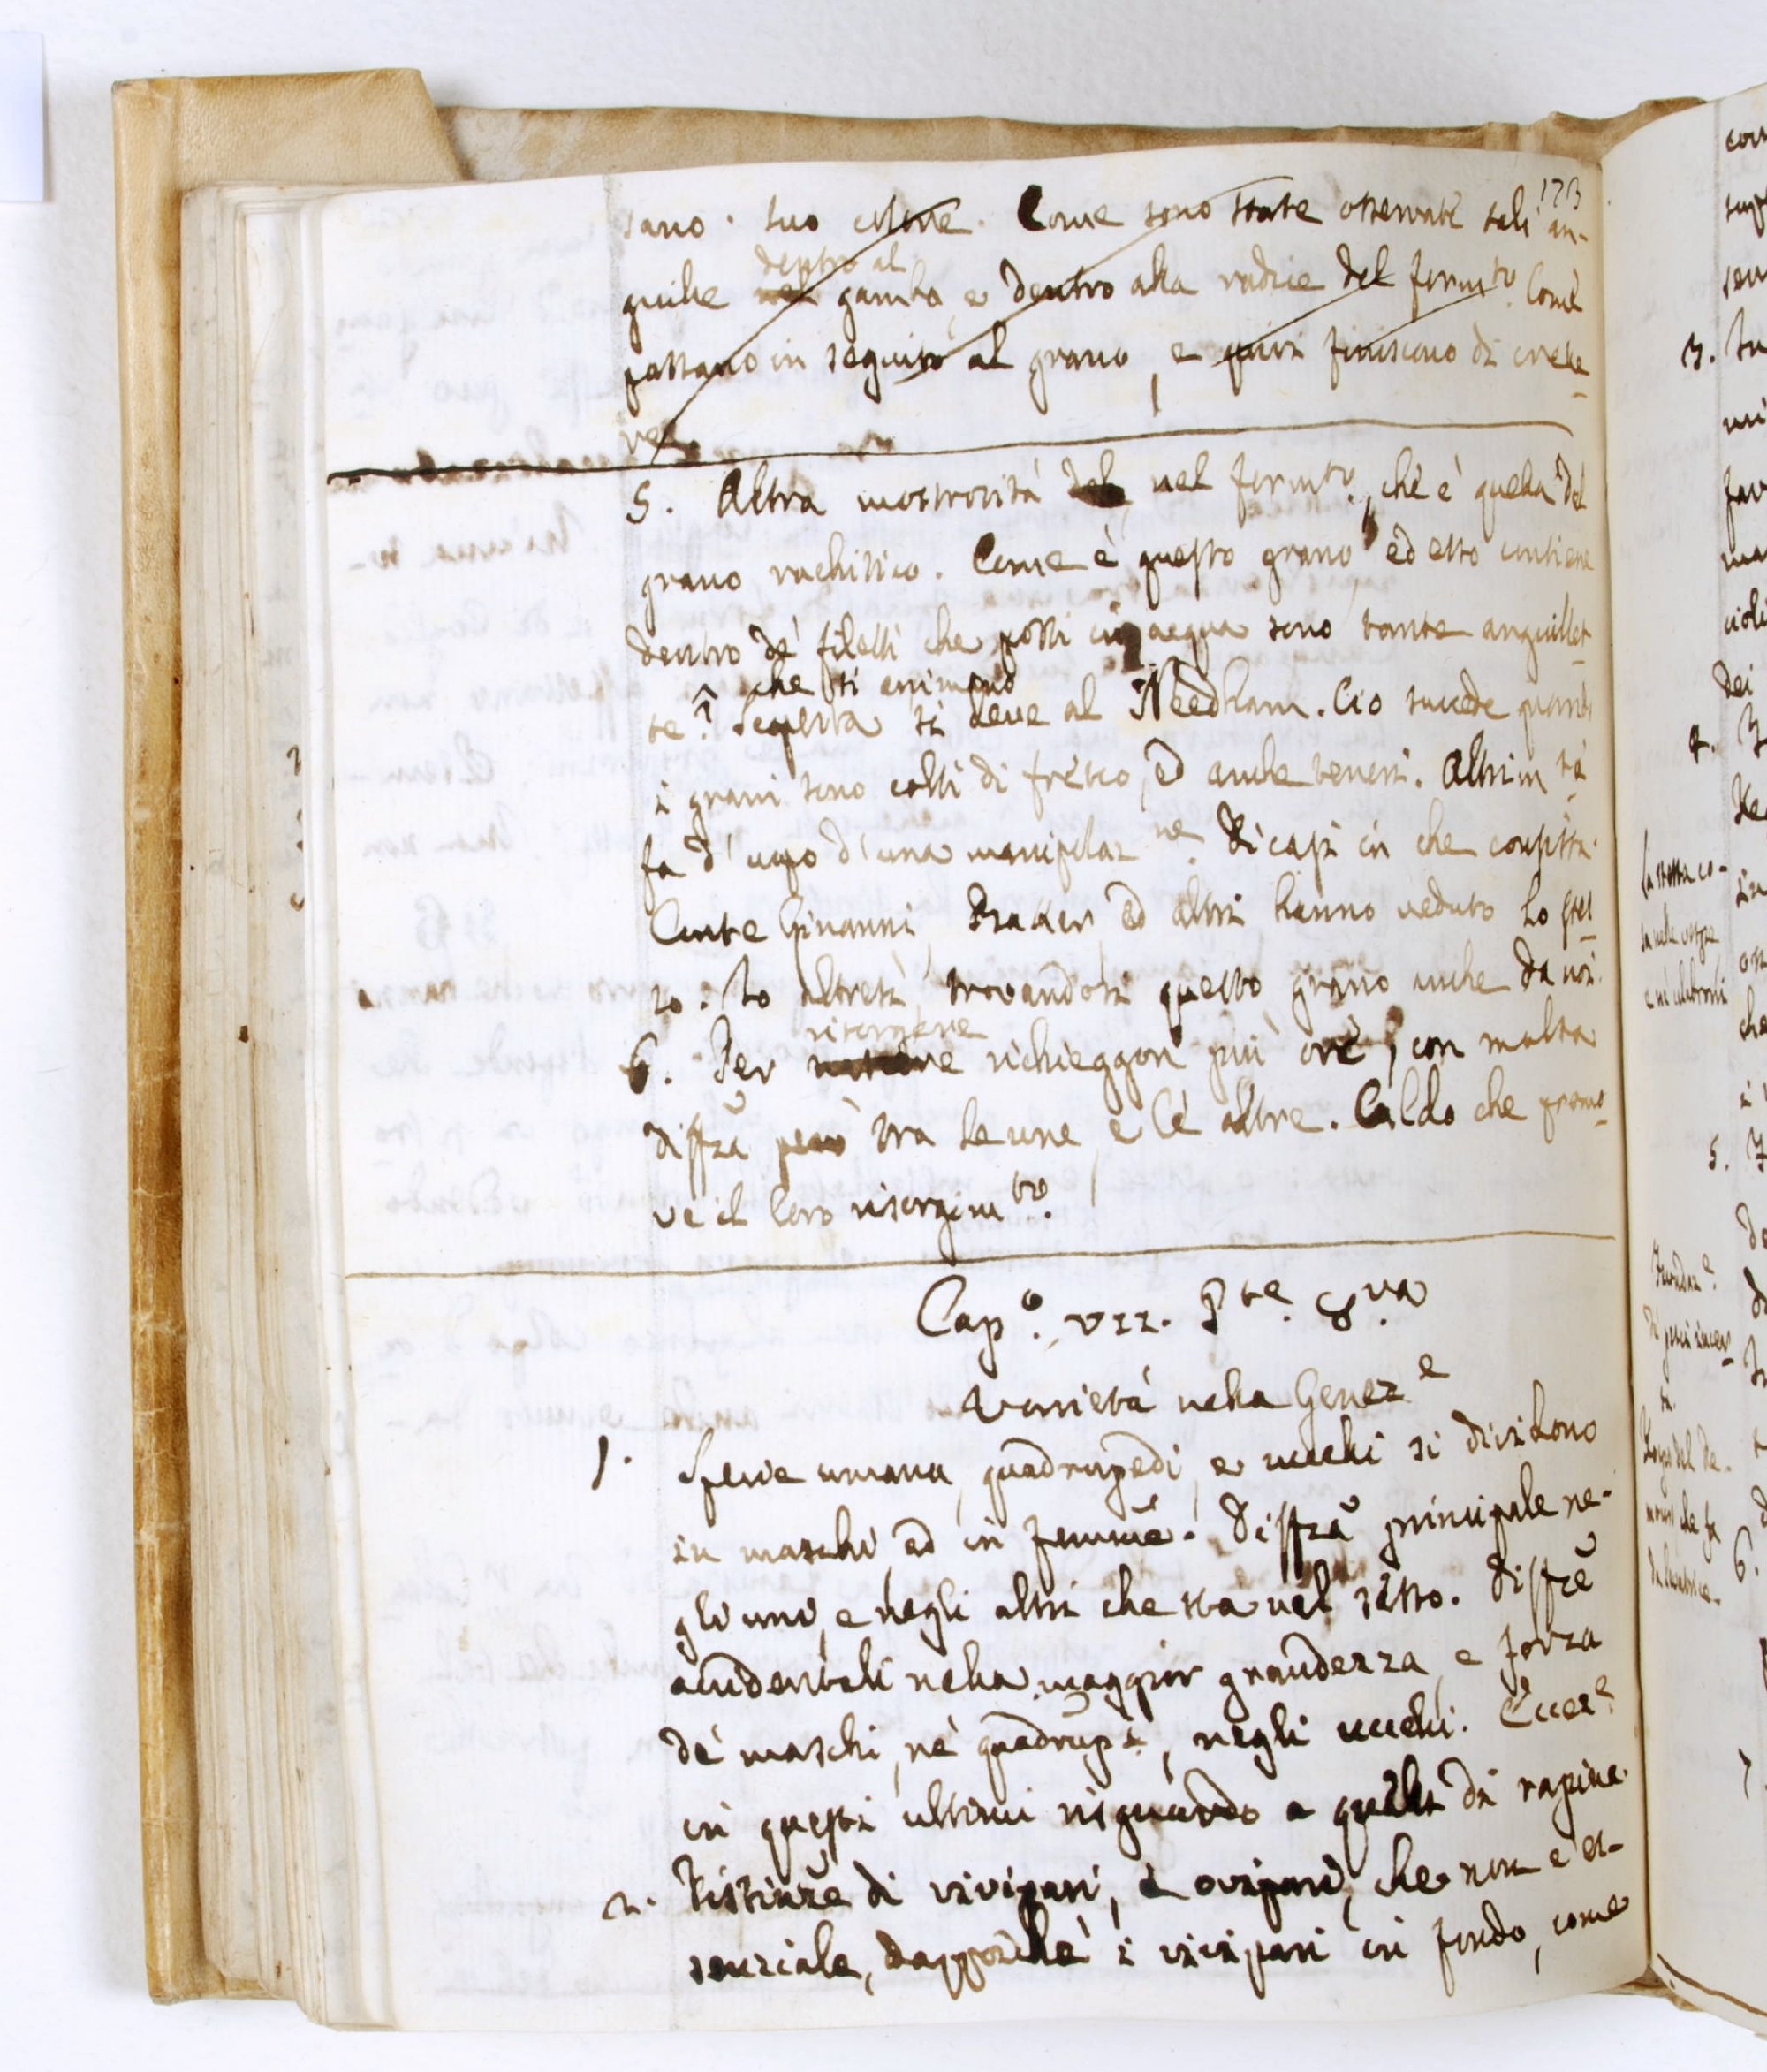 173
sano. suo colore. Come sono state osservate tali an-
guille nel dentro al gamba, e dentro alla radice del formto. Come
passano in seguito al grano, e quivi finiscono di cresce-
re.
5. Altra mostrosità del nel formto., che è quella del
grano rachitico. Come è questo grano ed esso contiene
dentro de' filetti che posti in acqua sono tante anguillet-
te che si animano. Scoperta si deve al Needham. Ciò succede quando
i grani sono colti di fresco, ed anche teneri. Altrim.ti
fa d'uopo d'una manipolaz.ne Dicasi in che consista.
Conte Ginanni, ed altri hanno veduto lo stes-
so. Io altresì trovandosi questo grano anche da noi.
6. Per risorgere richieggon più ore, con molta
diffza però tra le une, e le altre. Caldo che promo-
ve il loro risorgim.to.
Cap.o VII. Pte. 8.va
Varietà nella Generz.e
1. Specie umana, quadrupedi, e uccelli si dividono
in maschi, ed in femmine. Diffza principale ne-
gli uni, e negli altri che sta nel sesso. Diffze
accidentali nella maggior grandezza, e forza
de' maschi, ne' quadrupi, negli uccelli. Eccez.e
in questi ultimi risguardo a quelli di rapina.
2. Distinze di vivipari, e ovipari, che non è es-
senziale, dappoichè i vivipari in fondo, come
3.
4.
5.
6.
La stessa co-
sa nelle
Fecondaz.e
di pesci